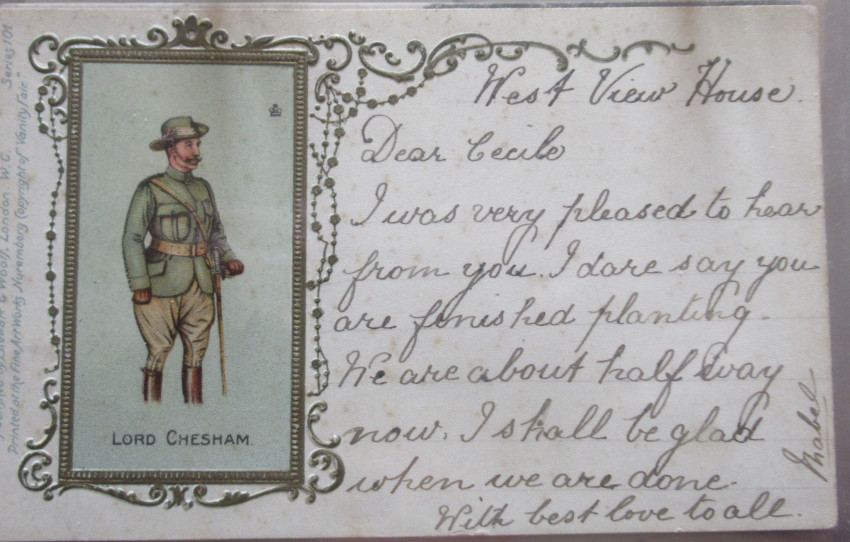 West View House.
Dear Cecile
I was very pleased to hear
from you. I dare say you
are finished planting.
We are about half way
now. I shall be glad
when we are done.
With best love to all.
Mabel
LORD CHESHAM.
London. W. C. Series 101
Printed at the Fine Art Works, Nuremberg Copyright of "Vanity Fair"